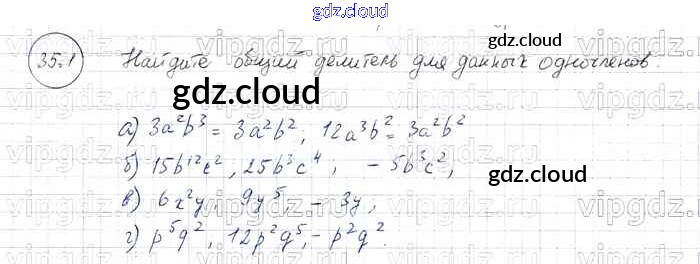 gdz.cloud
gdz.cloud
35.1 Найдите общий делитель для данных одночленов.
gdz.cloud
а) 3a²b³ = 3a²b², 12a³b² = 3a²b²
б) 15b¹²c², 25b³c⁴; – 5b³c²,
gdz.cloud
в) 6x²y, 9y⁵, – 3y,
г) p⁵q², 12p²q⁵, – p²q².